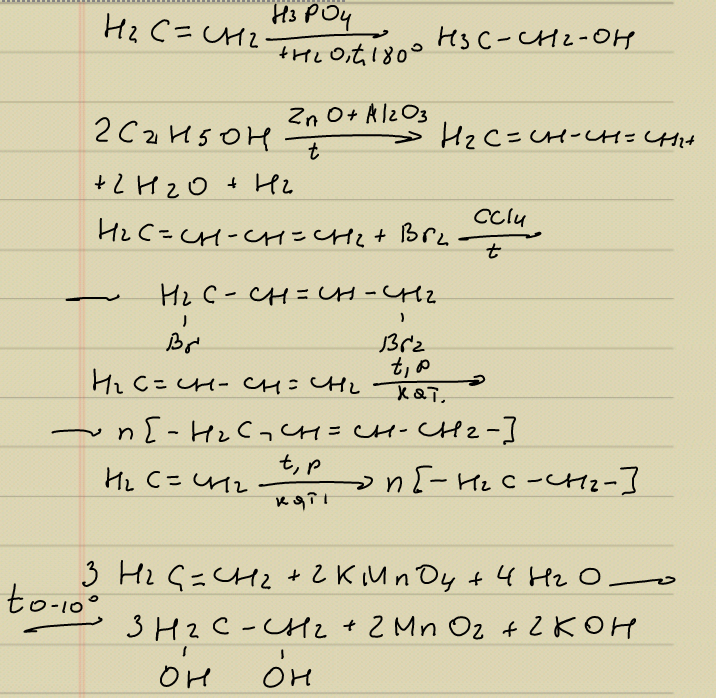 H2C=CH2 H3PO4 +H2O,t,180° H3C-CH2-OH
2C2H5OH ZnO+Al2O3 t H2C=CH-CH=CH2+
+2H2O + H2
H2C=CH-CH=CH2 + Br2 CCl4 t
— H2C-CH=CH-CH2
Br Br2
H2C=CH-CH=CH2 t,p кат.
→ n[-H2C-CH=CH-CH2-]
H2C=CH2 t,p кат. → n[-H2C-CH2-]
3 H2C=CH2 + 2KMnO4 + 4H2O →
t0-10° 3H2C-CH2 + 2MnO2 + 2KOH
OH OH